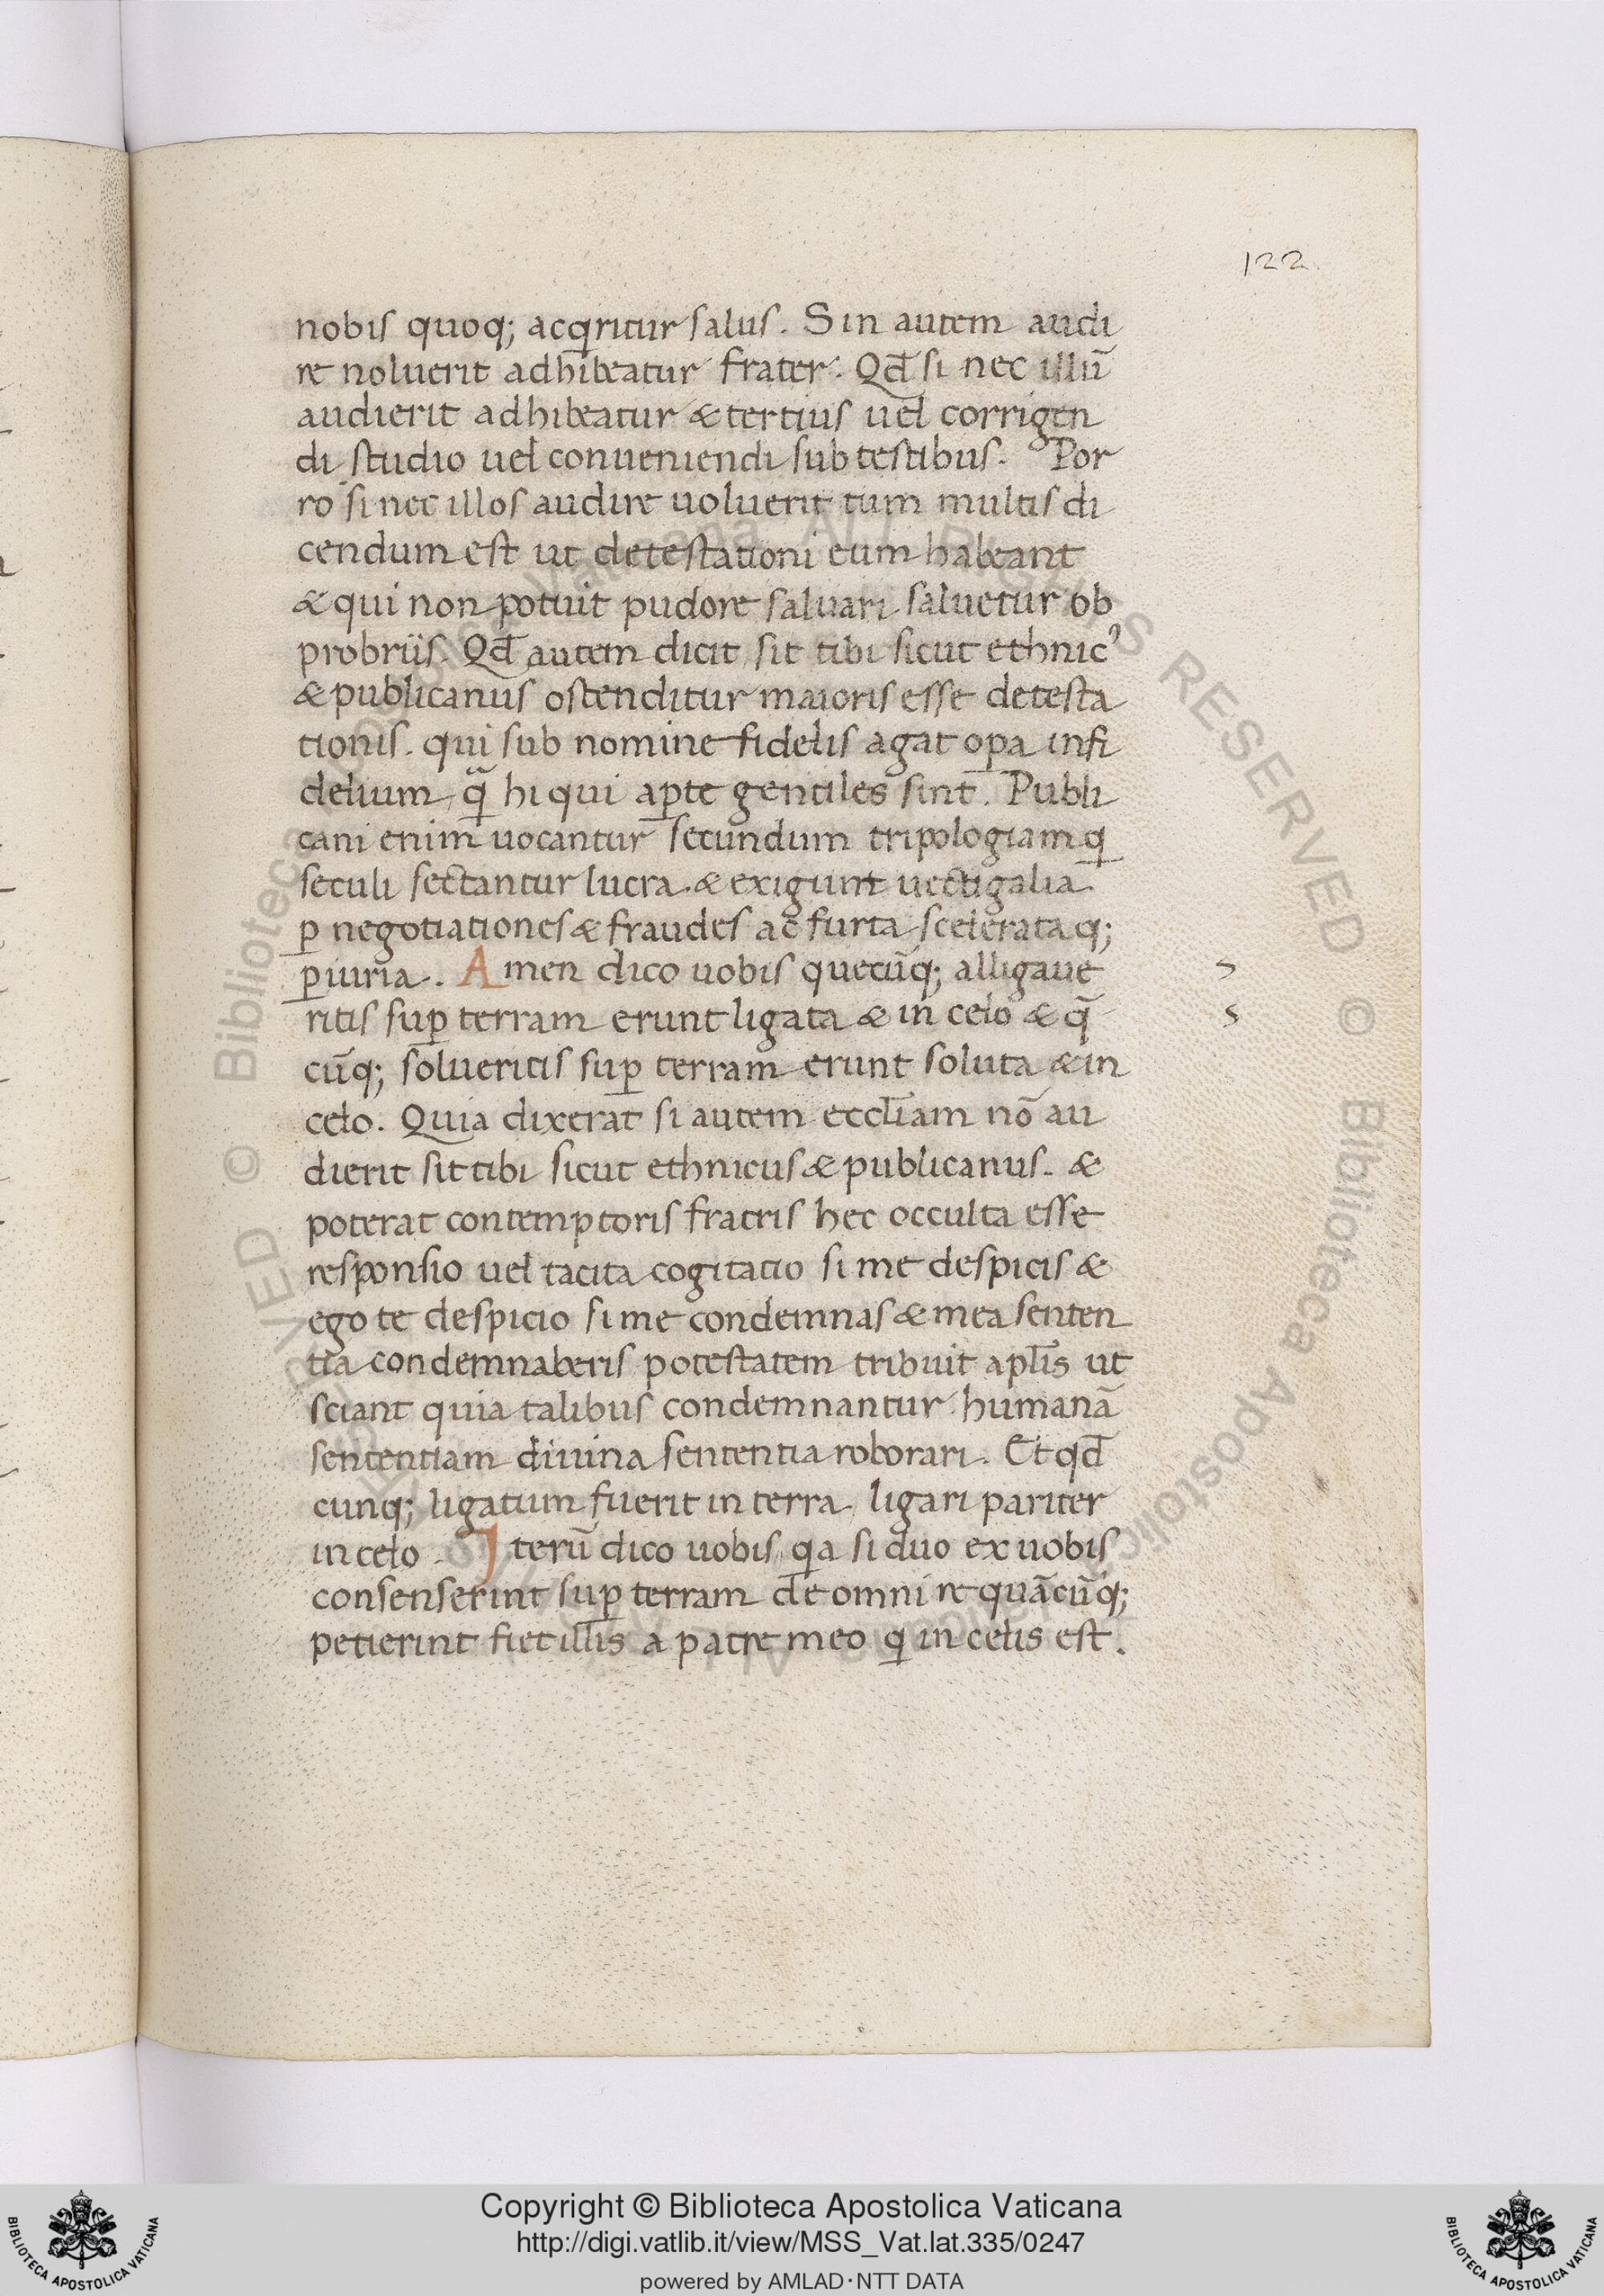 122
nobis quoq; acqritur salus. Sin autem audi
re noluerit adhibeatur frater. Qđ si nec illū
audierit adhibeatur & tertius uel corrigen
di studio uel conueniendi sub testibus. Por
ro si nec illos audire uoluerit tum multis di
cendum est ut detestationi eum habeant
& qui non potuit pudore saluari saluetur ob
probriis. Qđ autem dicit sit tibi sicut ethnicꝰ
& publicanus ostenditur maioris esse detesta
tionis. qui sub nomine fidelis agat oꝑa infi
delium qᷓ hi qui aꝑte gentiles sint. Publi
cani enim uocantur secundum tripologiam q
seculi sectantur lucra & exigunt uectigalia
ꝑ negotiationes & fraudes ac furta scelerataq;
ꝑiuria. Amen dico uobis quecūq; alligaue
ritis suꝑ terram erunt ligata & in celo & q̄
cūq; solueritis suꝑ terram erunt soluta & in
celo. Quia dixerat si autem eccl̄iam nō au
dierit sit tibi sicut ethnicus & publicanus. &
poterat contemptoris fratris hec occulta esse
responsio uel tacita cogitatio si me despicis &
ego te despicio si me condemnas & mea senten
tia condemnaberis potestatem tribuit apl̄is ut
sciant quia talibus condemnantur humanā
sententiam diuina sententia roborari. Et qđ
cunq; ligatum fuerit in terra ligari pariter
in celo. Iterū dico uobis qa si duo ex uobis
consenserint suꝑ terram de omni re quācūq;
petierint fiet illis a patre meo q in celis est.
© Biblioteca Apostolica Vaticana ALL RIGHTS RESERVED
Copyright © Biblioteca Apostolica Vaticana
http://digi.vatlib.it/view/MSS_Vat.lat.335/0247
powered by AMLAD·NTT DATA
BIBLIOTECA APOSTOLICA VATICANA
BIBLIOTECA APOSTOLICA VATICANA